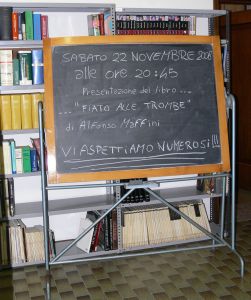 SABATO 22 NOVEMBRE 2008
alle ore 20:45
Presentazione del libro ...
... "FIATO ALLE TROMBE"
di Alfonso Maffini
VI ASPETTIAMO NUMEROSI!!!